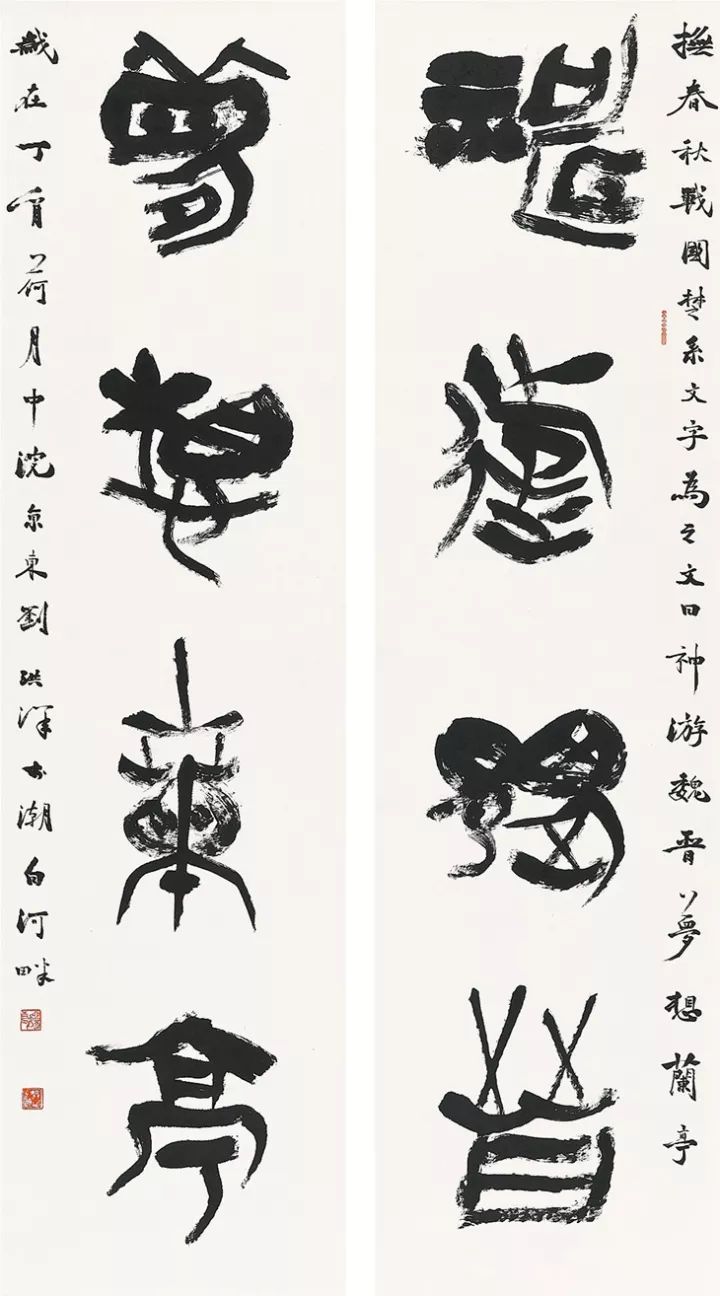 撫春秋戰國楚系文字為之文曰神游魏晉夢想蘭亭
神游魏晉
夢想蘭亭
歲在丁酉荷月中浣京東劉洪洋於潮白河畔